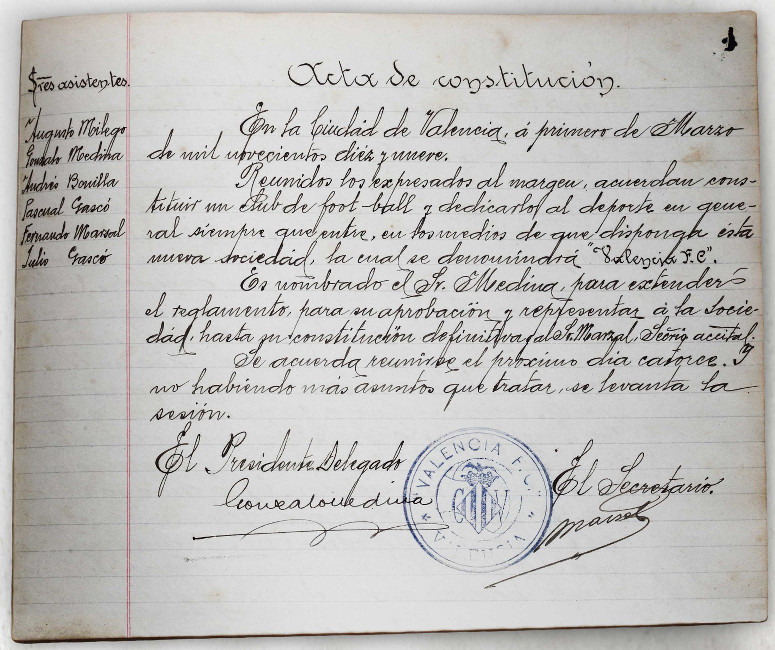 1
Acta de constitución.
Sres asistentes.
Augusto Milego
Gonzalo Medina
Andrés Bonilla
Pascual Gascó
Fernando Marsal
Julio Gascó
En la Ciudad de Valencia, á primero de Marzo
de mil novecientos diez y nueve.
Reunidos los expresados al margen, acuerdan cons-
tituir un Club de foot-ball y dedicarlo al deporte en gene-
ral siempre que entre, en los medios de que disponga ésta
nueva sociedad, la cual se denomindrá "Valencia F.C".
Es nombrado el Sr. Medina, para extender
el reglamento, para su aprobación y representar á la Socie-
dád, hasta su constitución definitiva y al Sr. Marzal,
Se acuerda reunirse el próximo dia catorce. Y
no habiendo más asuntos que tratar, se levanta la
sesión.
El Presidente Delegado
Gonzalo Medina
VALENCIA F.C.
VALENCIA
El Secretario.
Marsal